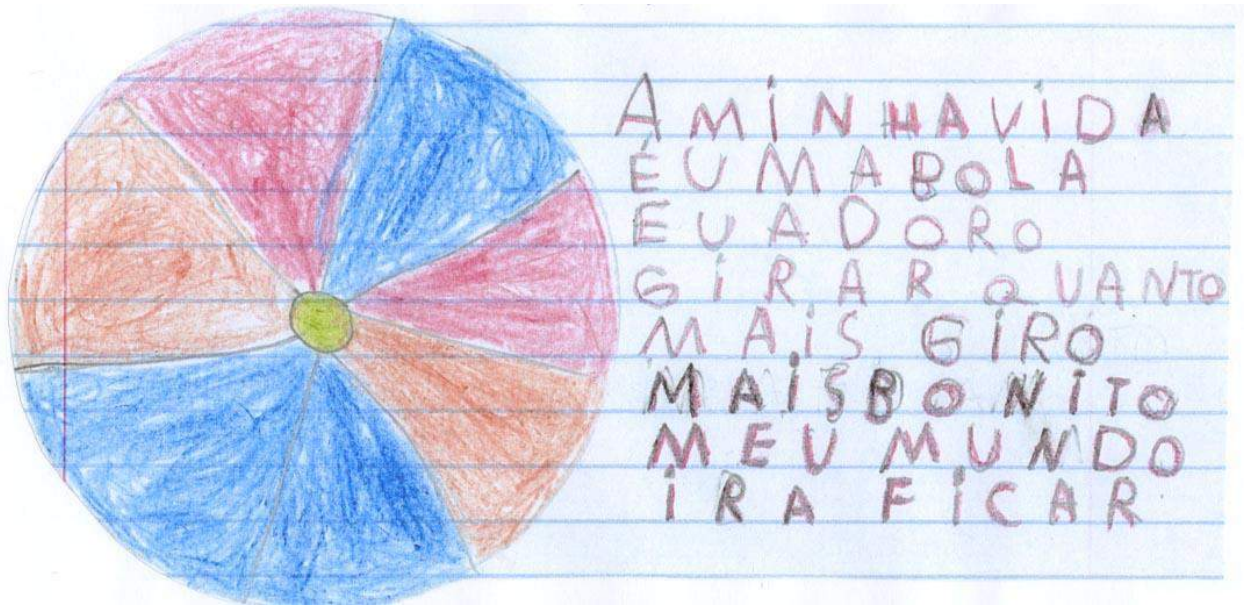 A MINHAVIDA
É UMA BOLA
EUADORO
GIRAR QUANTO
MAIS GIRO
MAISBONITO
MEU MUNDO
IRA FICAR